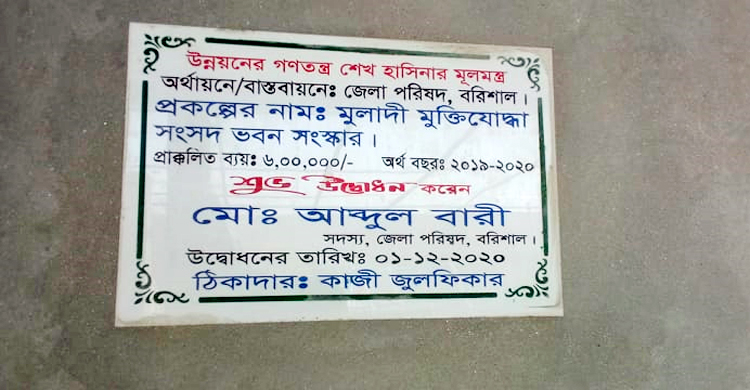 উন্নয়নের গণতন্ত্র শেখ হাসিনার মূলমন্ত্র
অর্থায়নে/বাস্তবায়নেঃ জেলা পরিষদ, বরিশাল।
প্রকল্পের নামঃ মুলাদী মুক্তিযোদ্ধা
সংসদ ভবন সংস্কার।
প্রাক্কলিত ব্যয়ঃ ৬,০০,০০০/- অর্থ বছরঃ ২০১৯-২০২০
শুভ উদ্বোধন করেন
মোঃ আব্দুল বারী
সদস্য, জেলা পরিষদ, বরিশাল।
উদ্বোধনের তারিখঃ ০১-১২-২০২০
ঠিকাদারঃ কাজী জুলফিকার